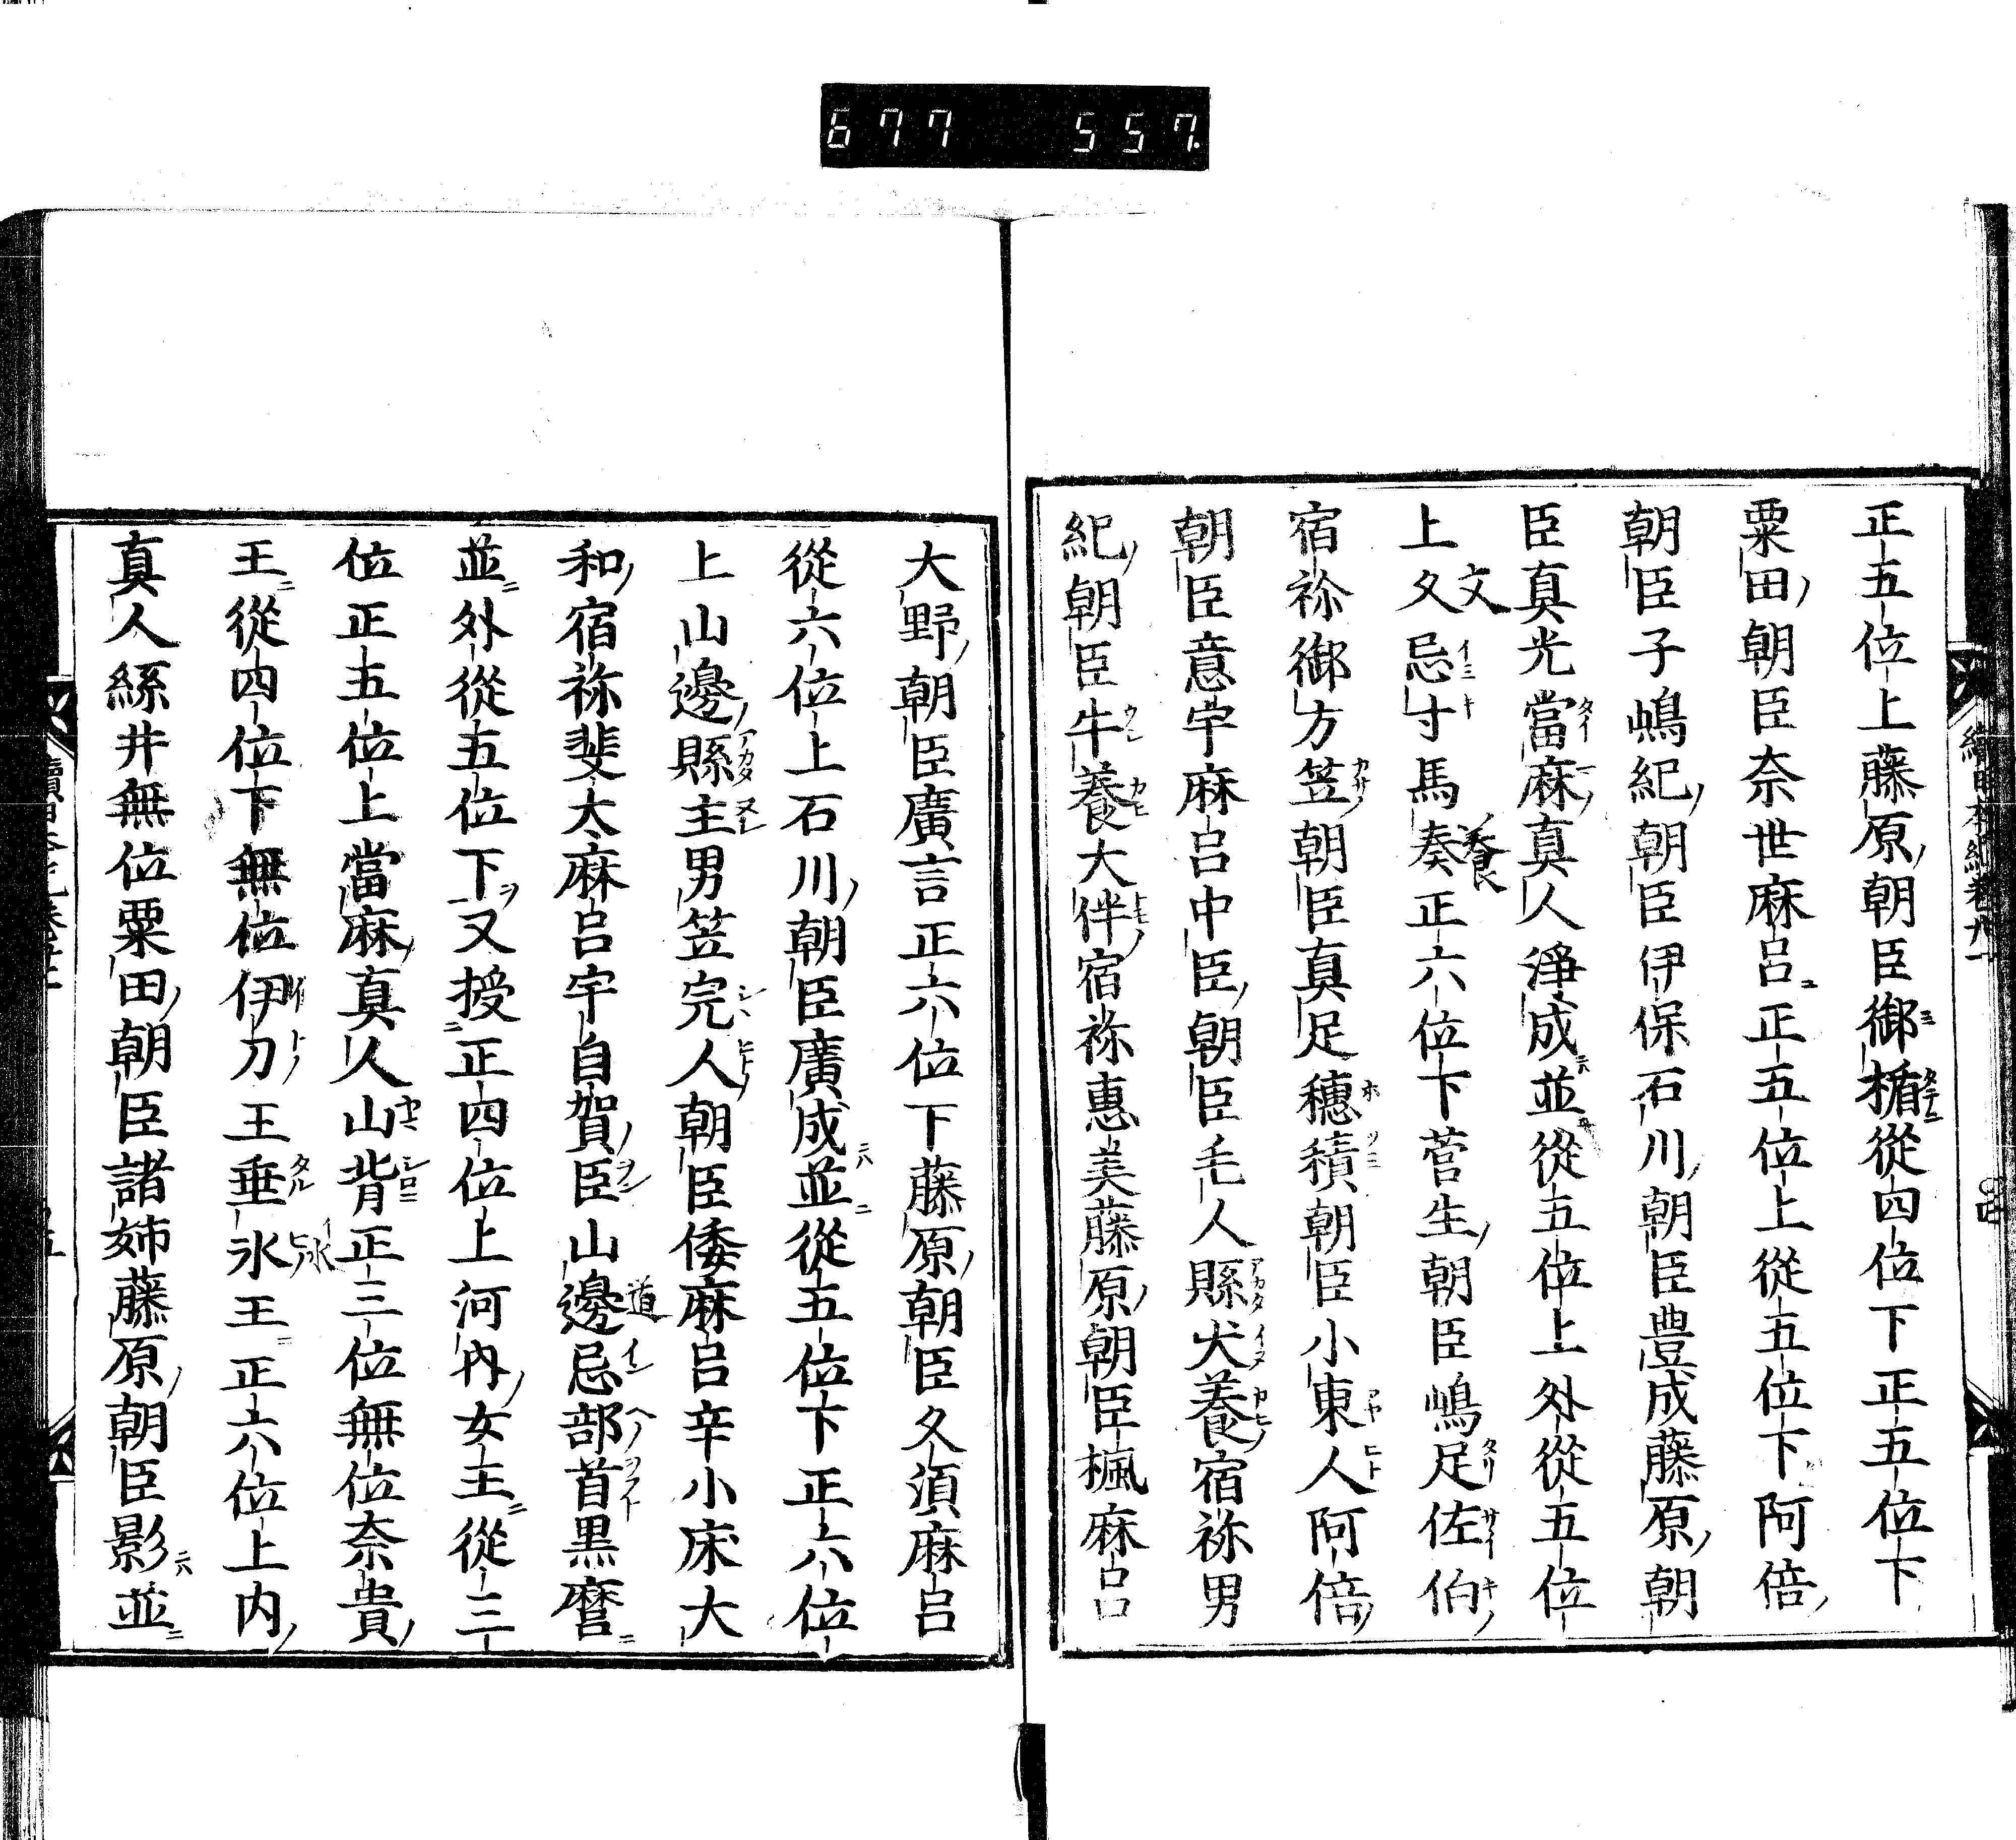 677 557.
正五位上藤原朝臣御楯從四位下正五位下
粟田朝臣奈世麻呂正五位上從五位下阿倍
朝臣子嶋紀朝臣伊保石川朝臣豊成藤原朝
臣真光當麻真人淨成並從五位上外從五位
上文忌寸馬養正六位下菅生朝臣嶋足佐伯
宿祢御方笠朝臣真足穗積朝臣小東人阿倍
朝臣意宇麻呂中臣朝臣毛人縣犬養宿祢男
紀朝臣牛養大伴宿祢惠美藤原朝臣楓麻呂
大野朝臣廣言正六位下藤原朝臣久須麻呂
從六位上石川朝臣廣成並從五位下正六位
上山邊縣主男笠完人朝臣倭麻呂辛小床大
和宿祢斐大麻呂宇自賀臣山邊忌部首黒麿
並外從五位下又授正四位上河内女王從三
位正五位上當麻真人山背正三位無位奈貴
王從四位下無位伊刀王垂氷王正六位上内
真人絲井無位粟田朝臣諸姉藤原朝臣影並